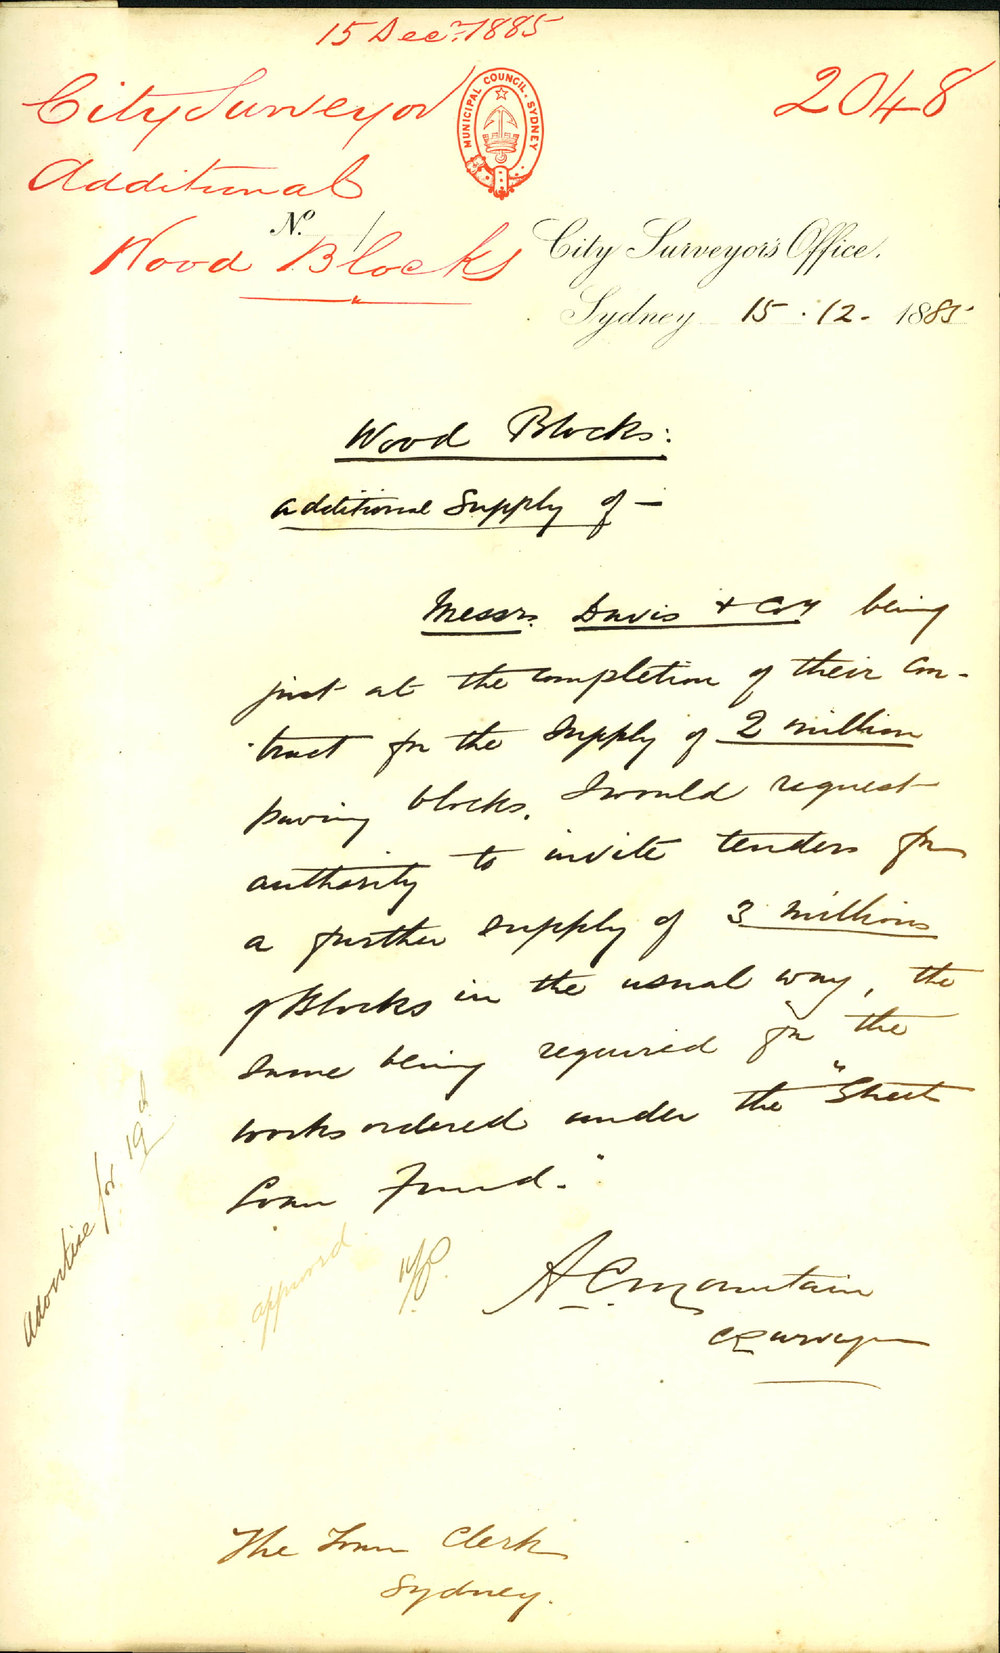 15 Decr. 1885
City Surveyor
2048
MUNICIPAL COUNCIL. SYDNEY
Additional
No.
Wood Blocks
City Surveyor's Office.
Sydney 15.12.1885
Wood Blocks:
Additional Supply of —
Messrs. Davis & Coy being
just at the completion of their con-
tract for the supply of 2 million
paving blocks, I would request
authority to invite tenders for
a further supply of 3 millions
of Blocks in the usual way, the
same being required for the
works ordered under the "Street
Loan Fund."
Advertise for 19d
approved
A C Mountain
C Surveyor
The Town Clerk
Sydney.